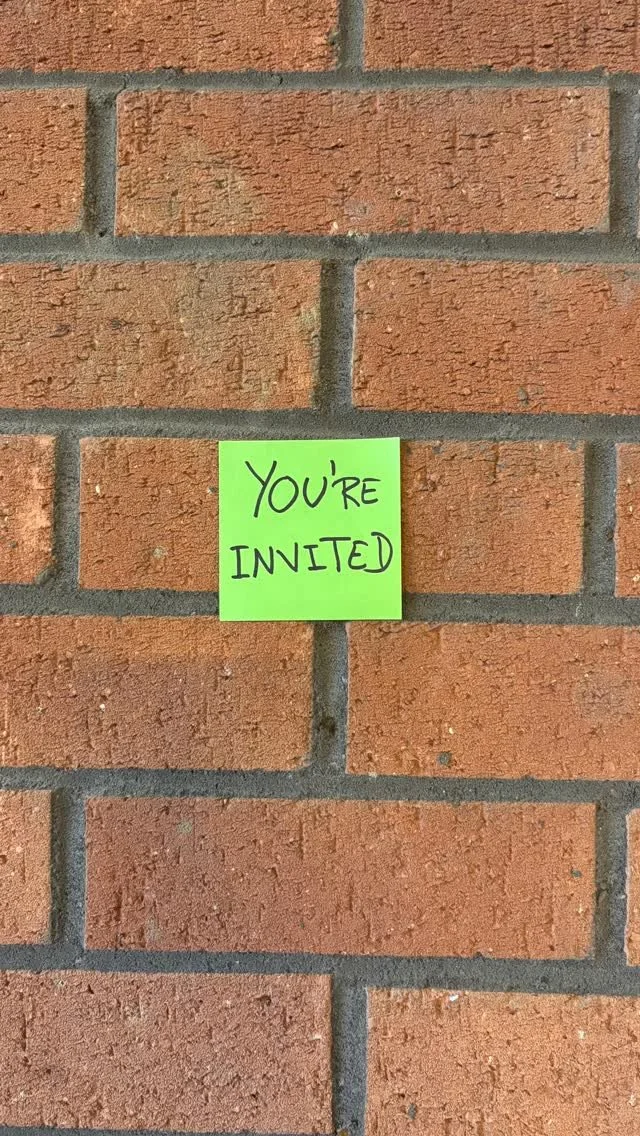 YOU'RE
INVITED